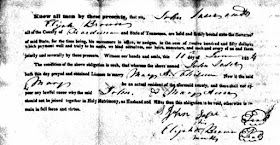 Know all men by these presents, that we, John
Elijah Brown
all of the County of and State of Tennessee, are held and firmly bound unto the Governor
of said State, for the time being, his successors in office, or assigns, in the sum of twelve hundred and fifty dollars,
which payment well and truly to be made, we bind ourselves, our heirs, executors, and each and every of us and them,
jointly and severally by these presents. Witness our hands and seals, this 11th day of June
The condition of the above obligation is such, that whereas the above named John
hath this day prayed and obtained License to marry Mary Now if the said
Mary be an actual resident of the aforesaid county, and there shall not ap-
pear any lawful cause why the said John & Mary
should not be joined together in Holy Matrimony, as Husband and Wife; then this obligation to be void, otherwise to re-
main in full force and virtue.
John
his
Elijah Brown
mark